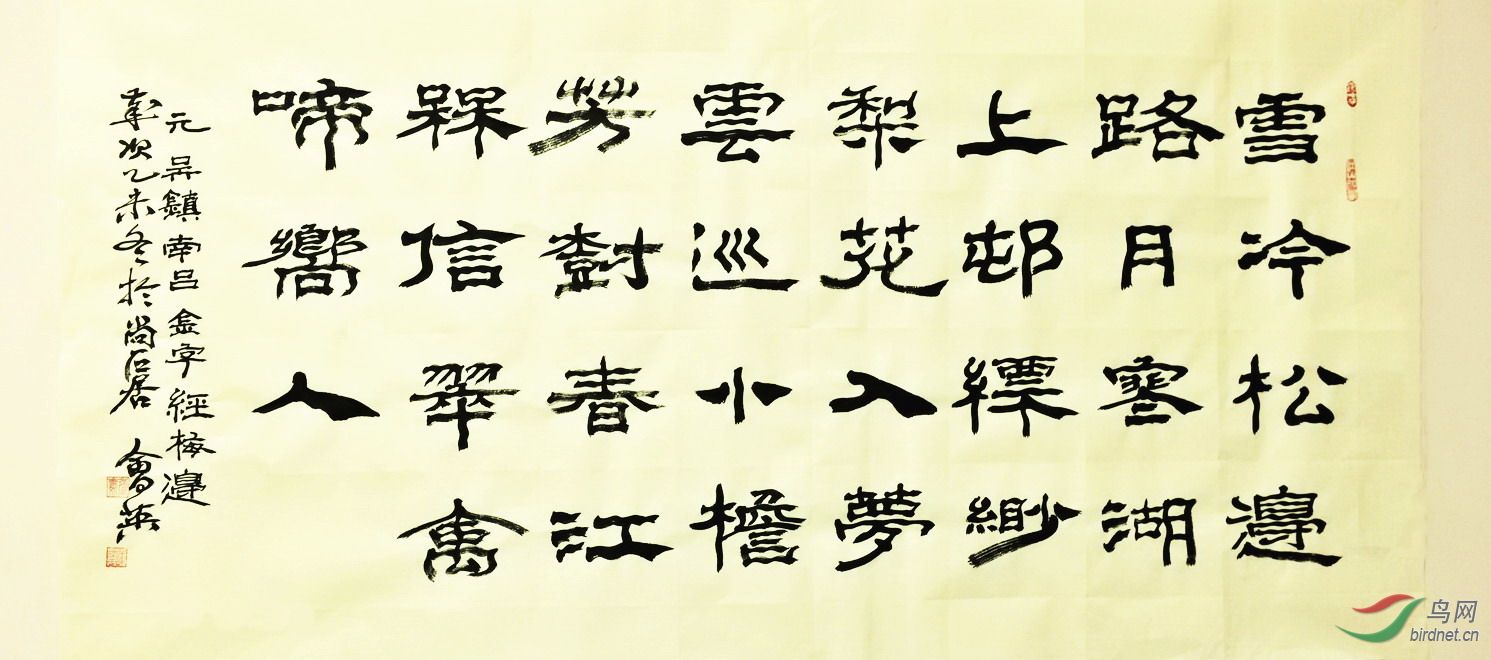 雪冷松邊
路月寒湖
上邨縹緲
梨花入夢
雲巡小檐
芳樹春江
槑信翠禽
啼嚮人
元 吳鎮南吕 金字經 梅邊
歲次乙未冬於尚石居 會
鸟网
birdnet.cn